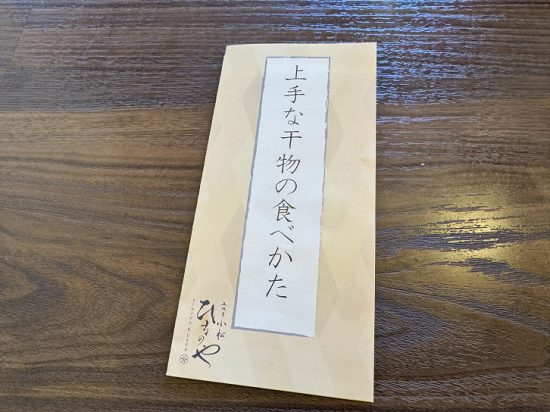 上手な干物の食べかた
小松
ひものや